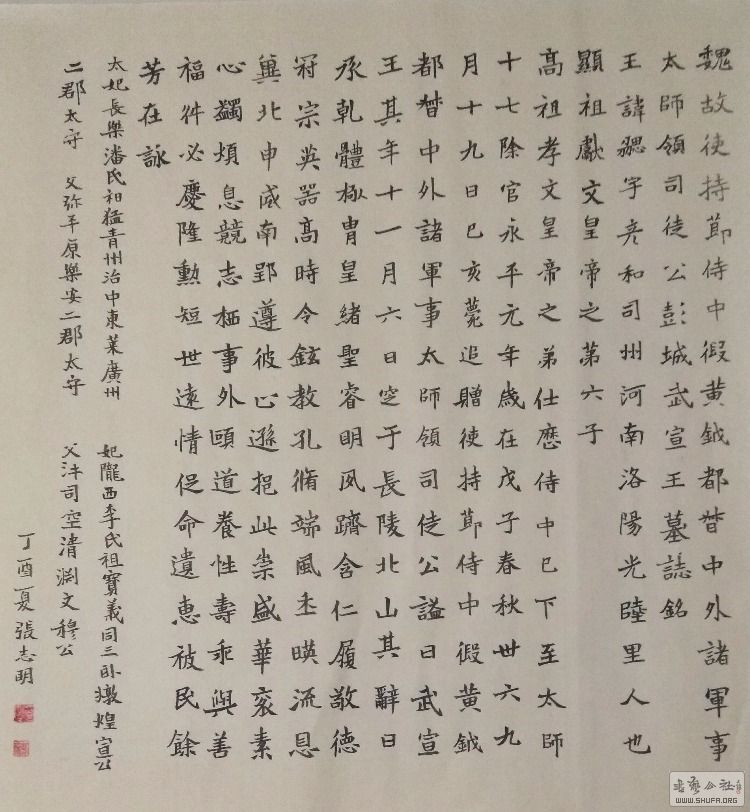 魏故使持節侍中假黄鉞都督中外諸軍事
太師領司徒公彭城武宣王墓誌銘
王諱勰字彦和司州河南洛陽光睦里人也
顯祖獻文皇帝之第六子
高祖孝文皇帝之弟仕歷侍中已下至太師
十七除官永平元年歲在戊子春秋卅六九
月十九日己亥薨追贈使持節侍中假黄鉞
都督中外諸軍事太師領司徒公謚曰武宣
王其年十一月六日窆于長陵北山其辭曰
承乾體極胄皇緒聖睿明夙躋含仁履敬德
冠宗英器高時令鉉教孔脩端風丕暎流恩
冀北申威南郢遵彼止遜挹此崇盛華衮素
心蠲煩息競志栖事外頤道養性壽乖與善
福舛必慶隆勳短世遠情促命遺惠被民餘
芳在詠
太妃長樂潘氏祖猛青州治中東莱廣州
二郡太守 父弥平原樂安二郡太守
妃隴西李氏祖寶義同三卧墩煌宣公
父沣司空清渊文穆公
丁酉夏張志明
书艺公社
WWW.SHUFA.ORG